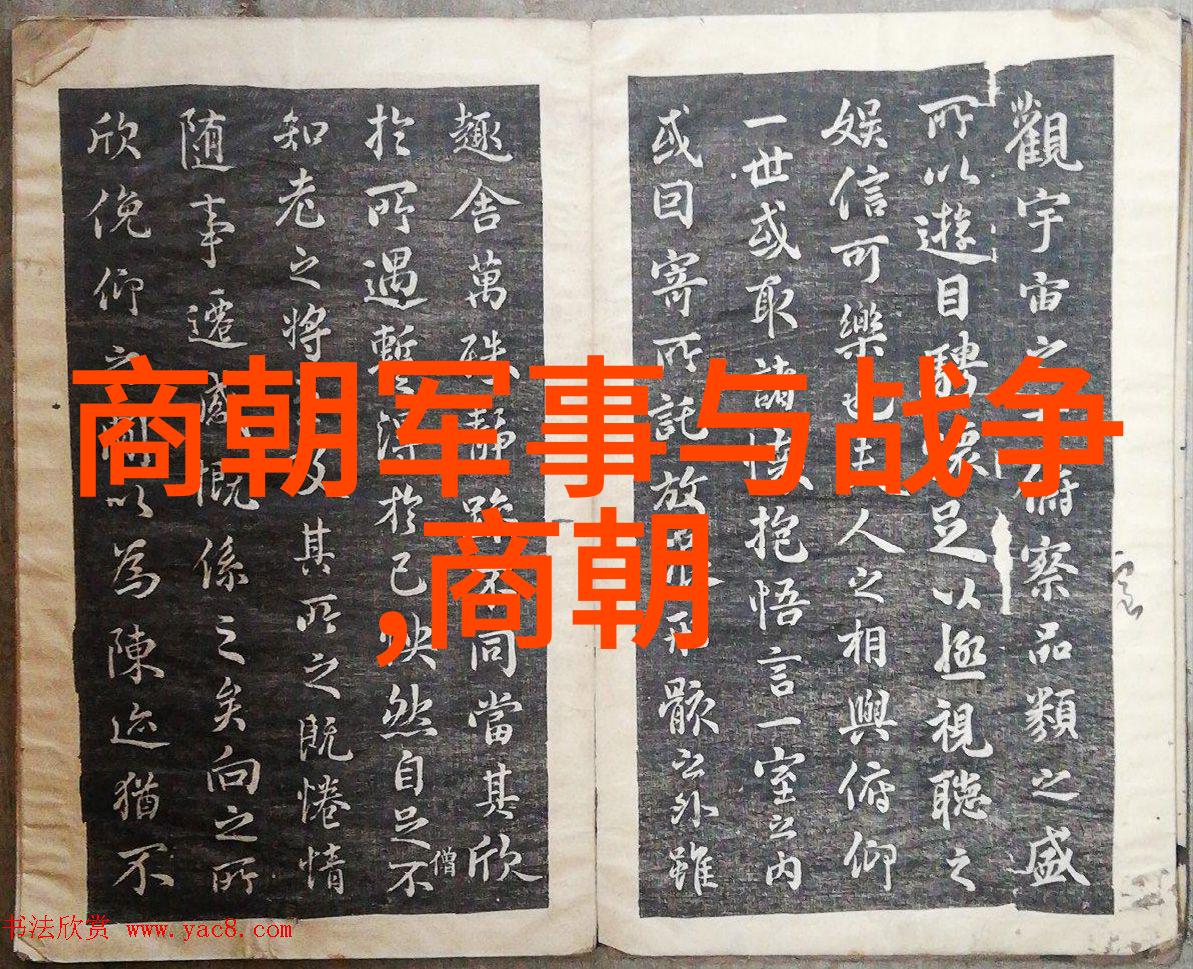 商朝军事与战争
,商朝
觀宇宙之俯察品類之盛
所以遊目騁懷足以極視聽之
娛信可樂也人之相與俯仰
一世或取諸懷抱悟言一室之內
或因寄所託放形骸之外雖
趣舍萬殊靜躁不同當其欣
於所遇暫得於己怏然自足不
僧
知老之將及其所之既惓情
随事遷感慨係之矣向之所
欣俛仰之間以為陳迹猶不
书法欣赏 www.yac8.com